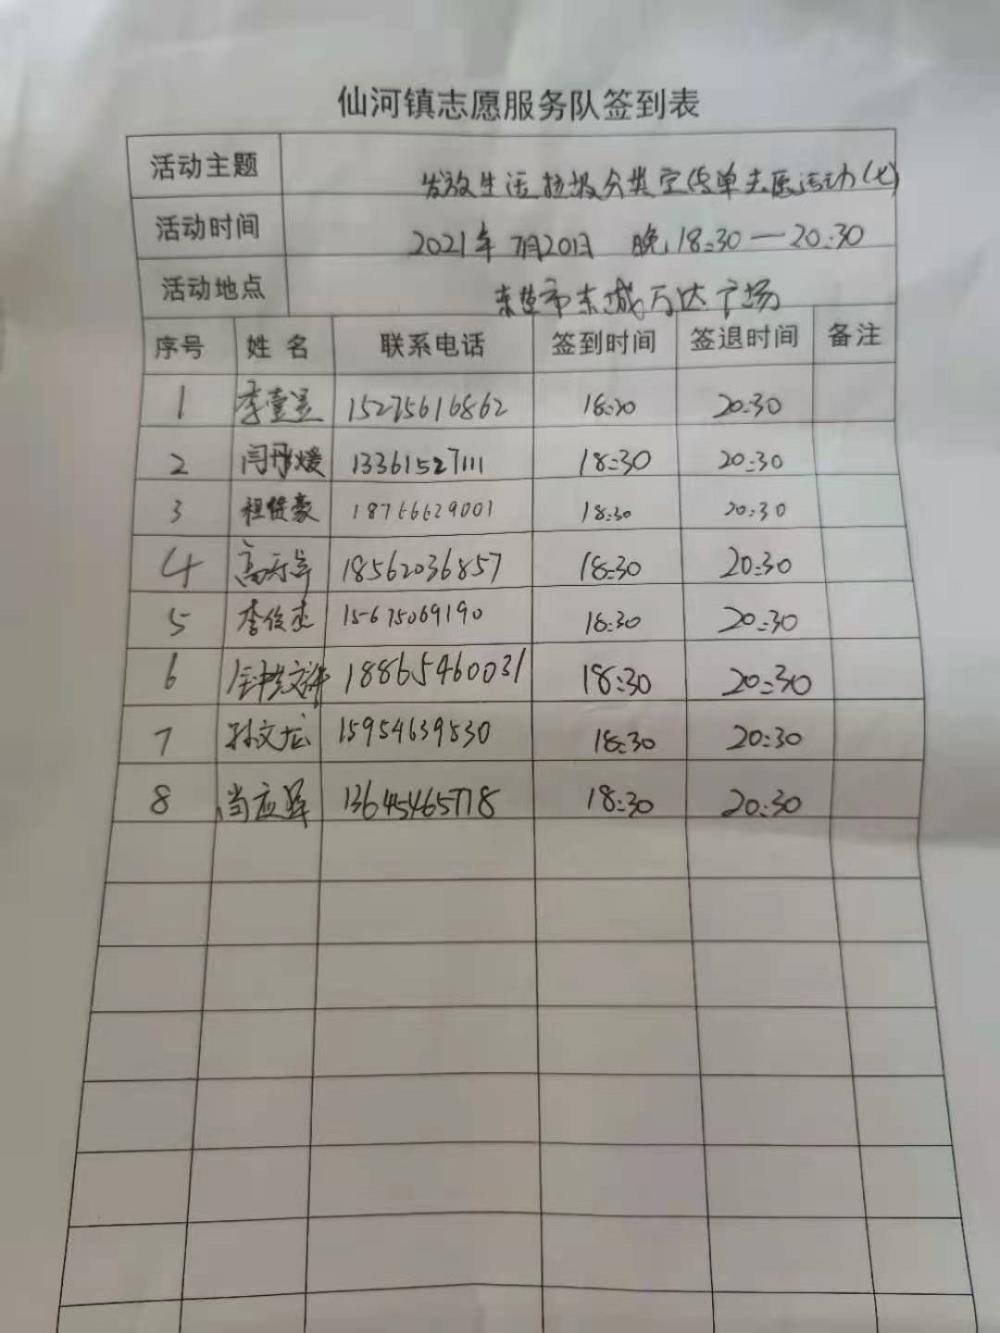 仙河镇志愿服务队签到表
活动主题 发放生活垃圾分类宣传单志愿活动(七)
活动时间 2021年7月20日 晚18:30—20:30
活动地点 东营市东城万达广场
序号 姓名 联系电话 签到时间 签退时间 备注
1 15275616862 18:30 20:30
2 闫丹媛 13361527111 18:30 20:30
3 程贤豪 18766629001 18:30 20:30
4 18562036857 18:30 20:30
5 李俊杰 15675069190 18:30 20:30
6 18865460031 18:30 20:30
7 孙文龙 15954639530 18:30 20:30
8 13645465718 18:30 20:30